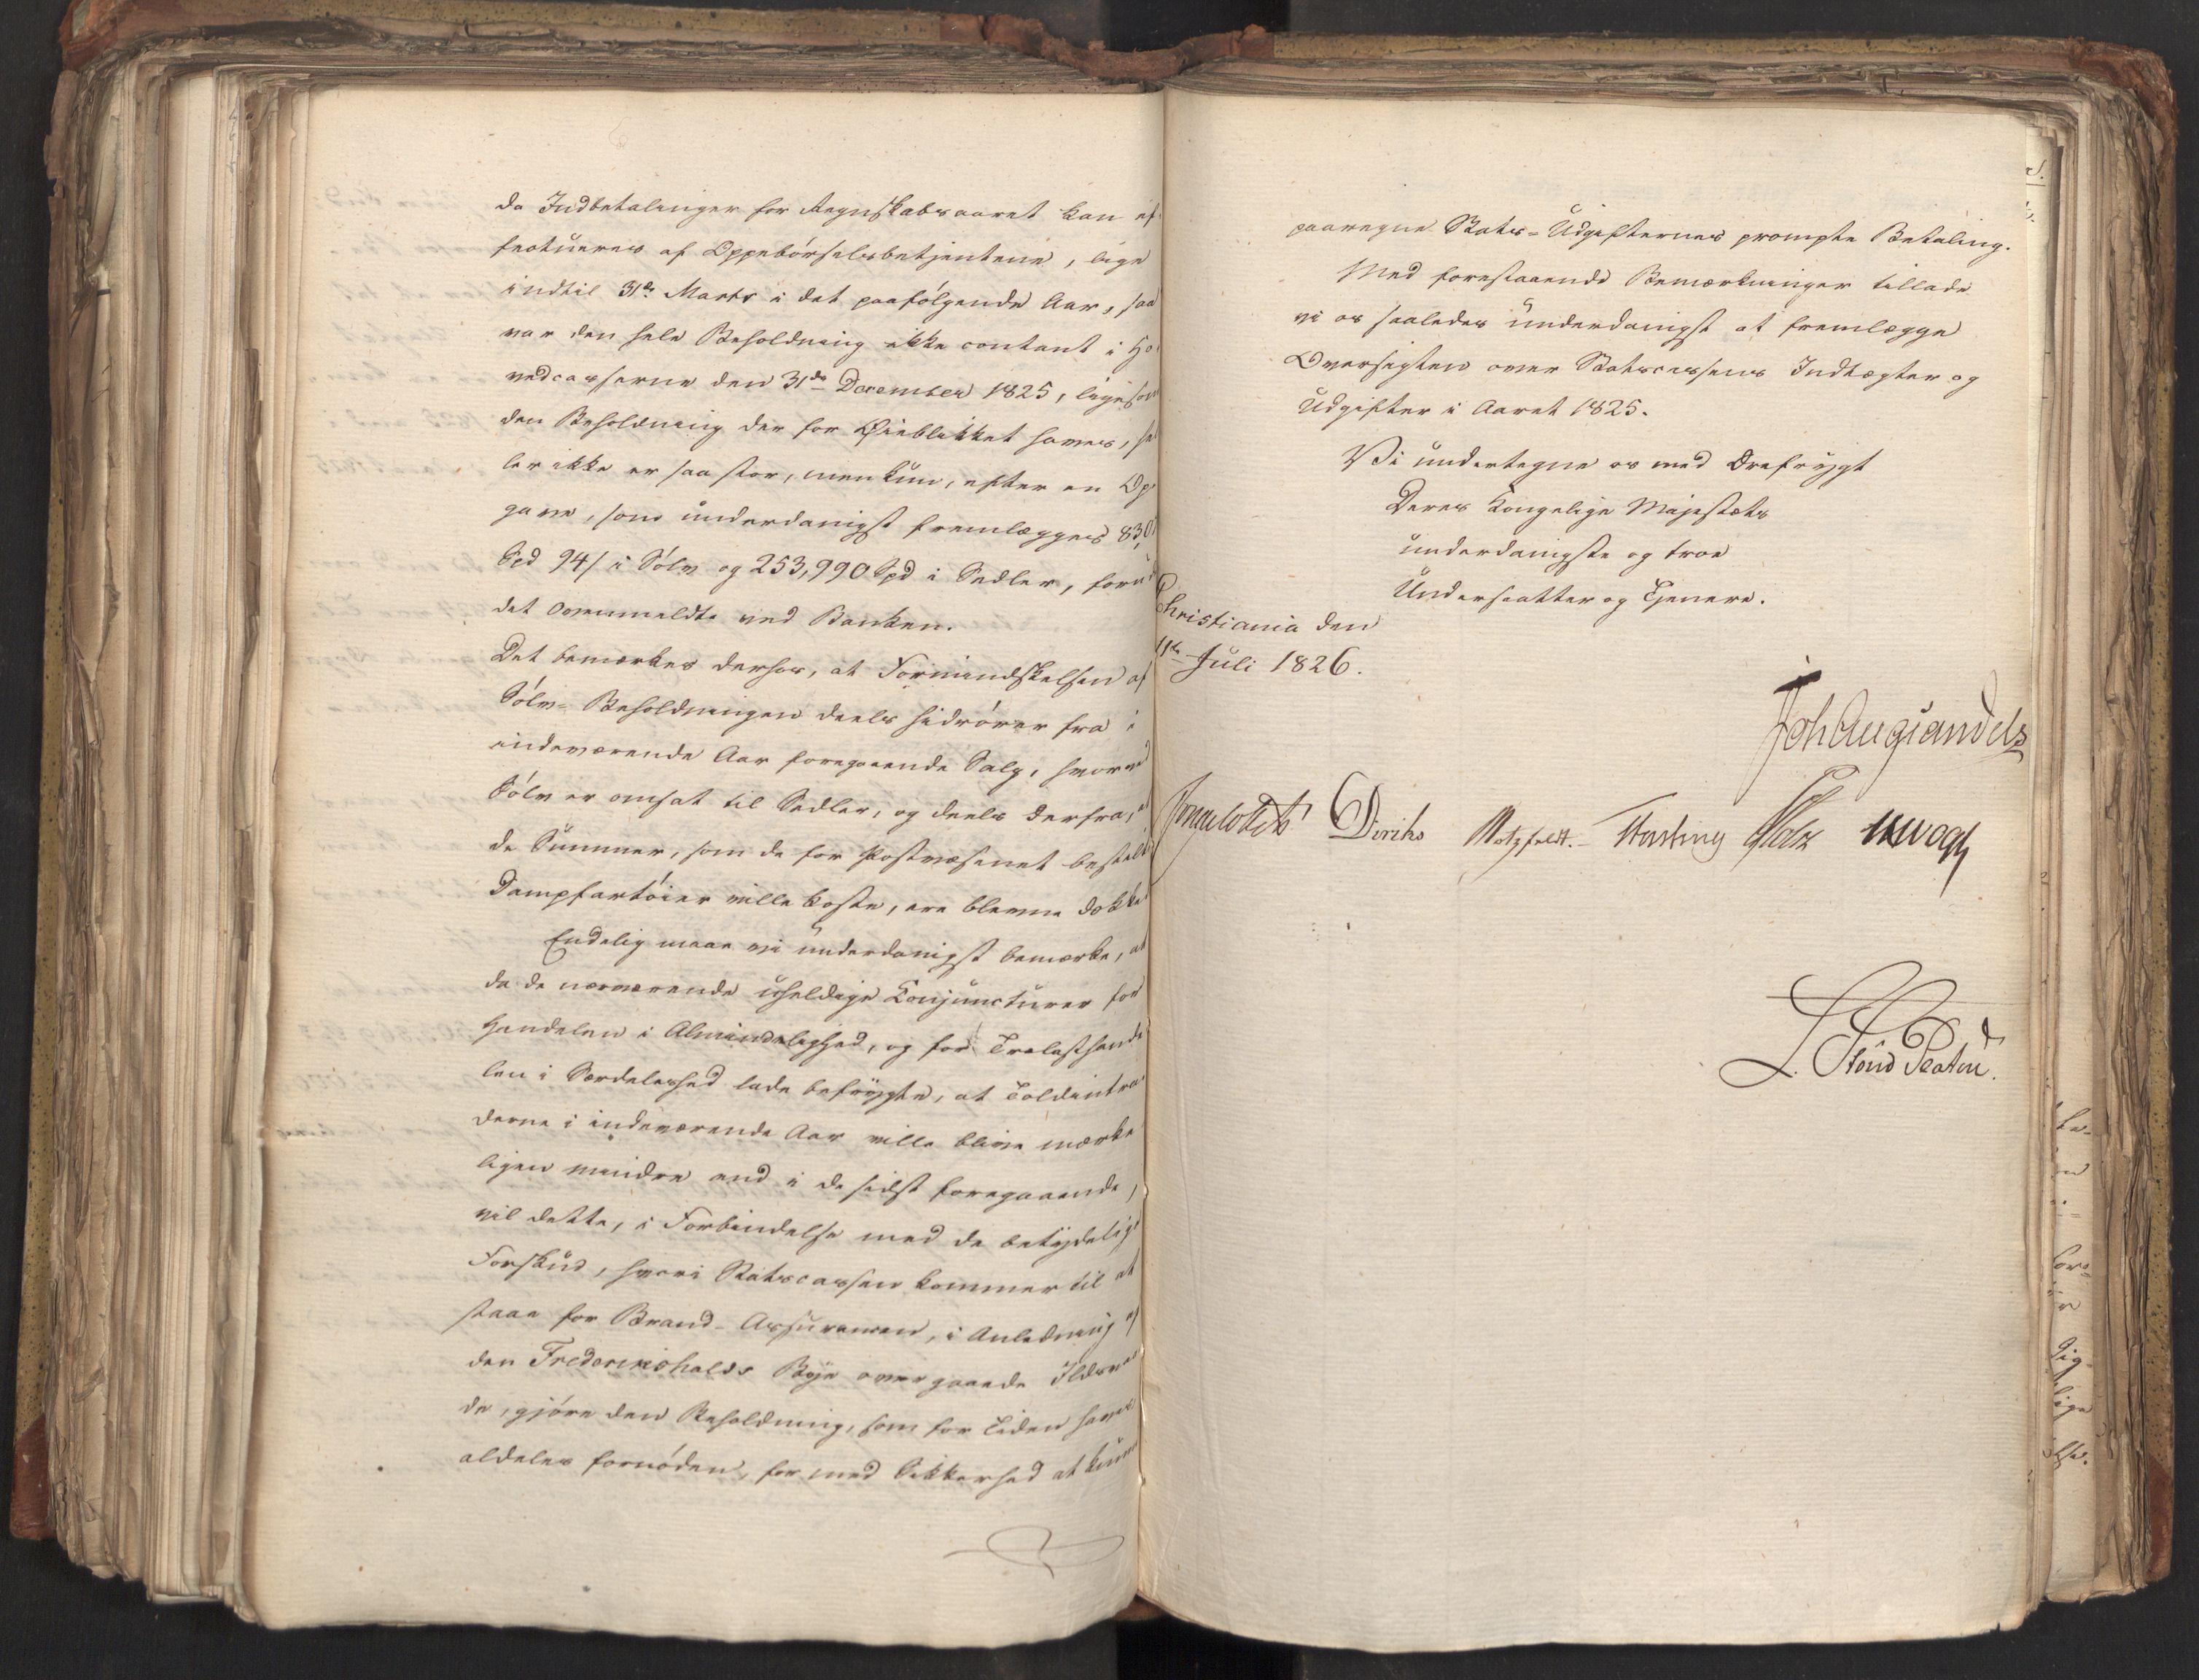 da Indbetalinger for Regnskabsaaret kan ef
fectueres af Oppebörselsbetjentene, lige
indtil 31te Marts i det paafölgende Aar, saa
var den hele Beholdning ikke contant i Ho
vedcasserne den 31de December 1825, ligesom
den Beholdning der for Øieblikket haves, hel
ler ikke er saa stor, men kun, efter en Op
gave, som underdanigst fremlægges 83,0
Spd 94/ i Sölv og 253,990 Spd i Sedler, foru
det ovenmeldte ved Banken.
Det bemærkes derhos, at Formindskelsen af
Sölv-Beholdningen deels hidrörer fra i
indeværende Aar foregaaende Salg, hvorved
Sölv er omsat til Sedler, og deels derfra, at
de Summer, som de for Postvæsenet bestilte
Dampfartöier ville koste, ere blevne dække
Endelig maae vi underdanigst bemærke, at
da de nærværende uheldige Conjuncturer for
Handelen i Almindelighed, og for Trælasthande
len i Særdeleshed lade befrygte, at Toldintra
derne i indeværende Aar ville blive mærke
ligen mindre end i de sidst foregaaende,
vil dette, i Forbindelse med de betydelige
Forskud, hvori Statscassen kommer til at
staae for Brand-Assurancen, i Anledning af
den Fredericshalds Bye overgaaede Ildsvaa
de, gjöre den Beholdning, som for Tiden haves
aldeles fornöden, for med Sikkerhed at kunne
paaregne Stats-Udgifternes prompte Betaling.
Med forestaaende Bemærkninger tillade
vi os saaledes underdanigst at fremlægge
Oversigten over Statscassens Indtægter og
Udgifter i Aaret 1825.
Vi undertegne os med Ærefrygt
Deres Kongelige Majestæts
underdanigste og troe
Undersaatter og Tjenere.
Christiania den
11te Juli 1826.
Joh Aug Sandels
Diriks Motzfeldt. Fasting Vogt
L. Stoud Platou.